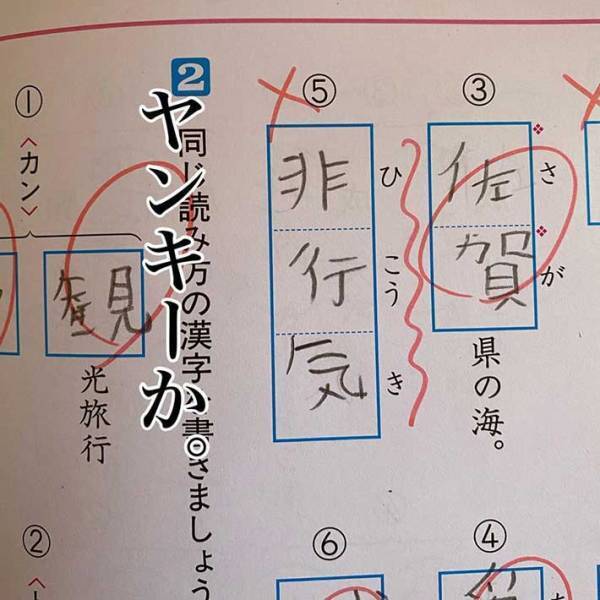 ③
さが
佐賀
県の海。
④
⑤
ひこうき
非行気
⑥
2
同じ読み方の漢字 書きましょう
ヤンキーか。
①
〈カン〉
観
光旅行
②